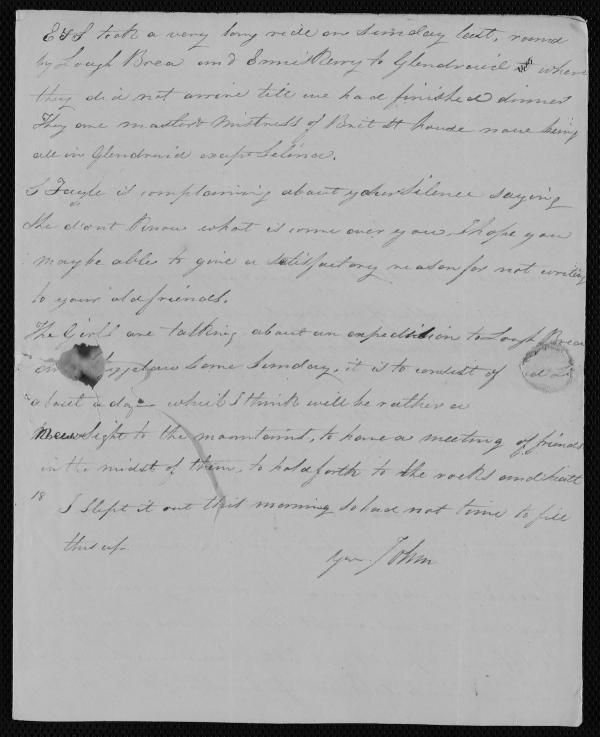 E & S took a very long ride on Sunday last, round
by Lough Brea and Enniskerry to Glendruid where
they did not arrive till we had finished dinner
They are master & mistress of Brit St house now being
all in Glendruid except Selina.
S Fayle is complaining about your silence saying
she don't know what is come over you, I hope you
may be able to give a satisfactory reason for not writing
to your old friends.
The Girls are talking about an expedition to Lough Brea
some Sunday, it is to consist of
about a doz which I think will be rather a
new sight to the mountains, to have a meeting of friends
in the midst of them, to hold forth to the rocks and heath
18 I slept it out this morning so had not time to fill
this up.
John